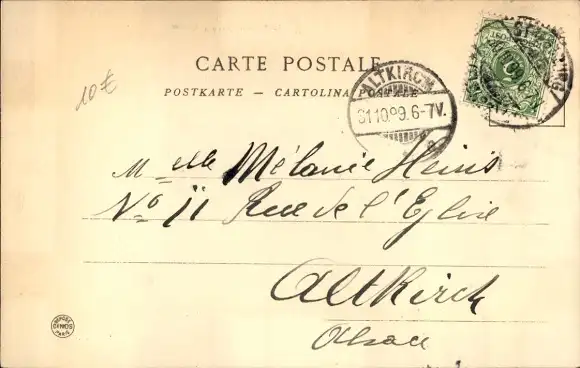 CARTE POSTALE
POSTKARTE — CARTOLINA POSTALE
10€
ALTKIRCH
31.10.99. 6-7V.
Melle Mélanie Heins
No 11 Rue de l'Eglise
Altkirch
Alsace